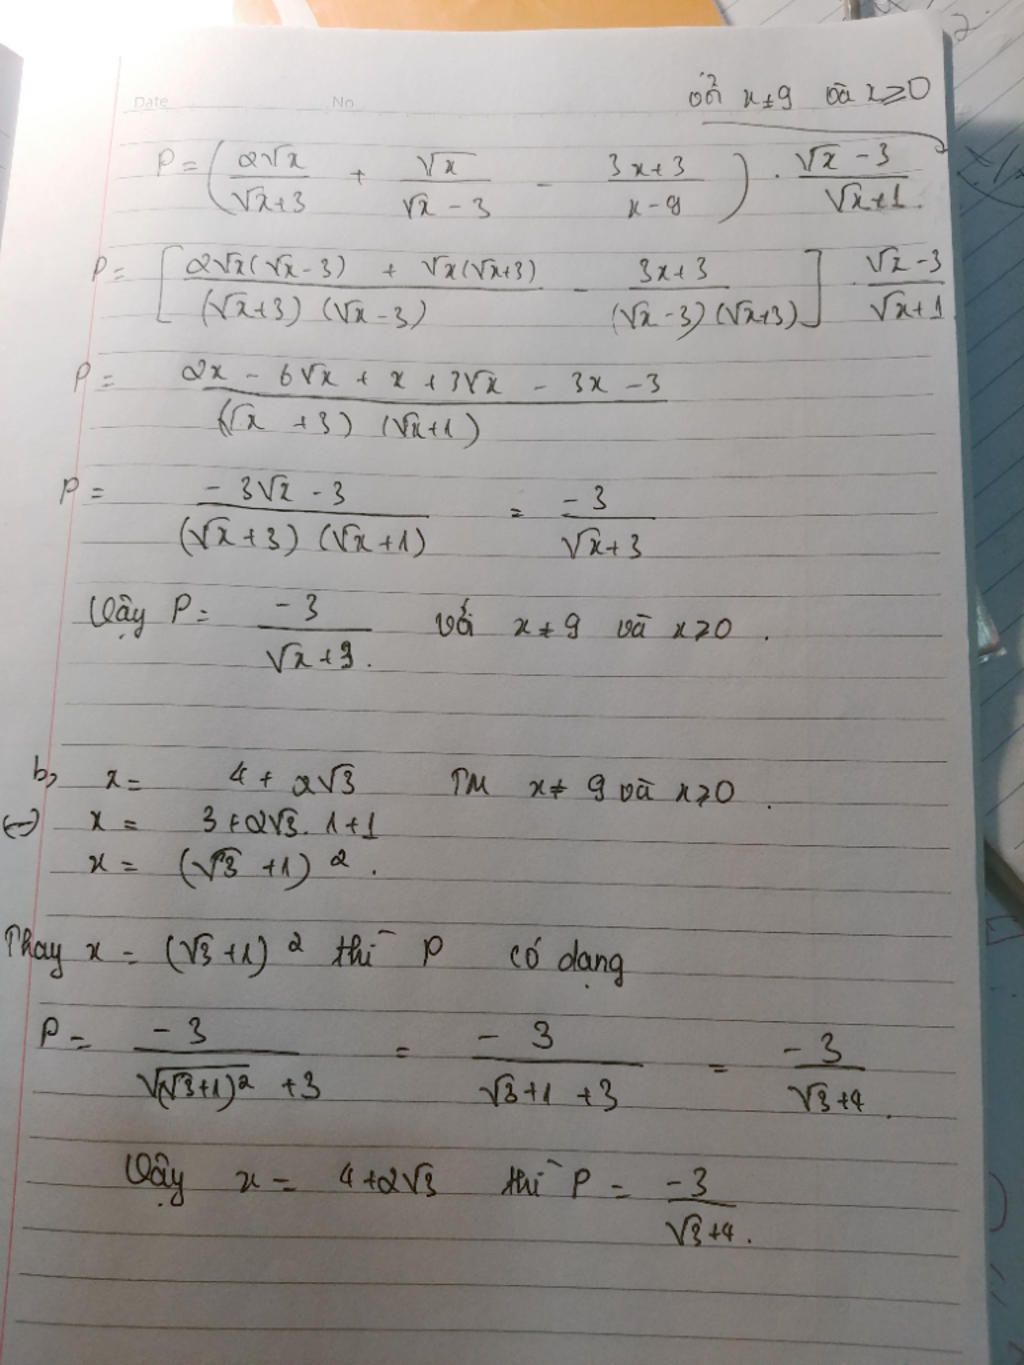 với x ≠ 9 và x ≥ 0
Date No
P = ( 2√x / (√x+3) + √x / (√x - 3) - (3x+3) / (x-9) ) . (√x - 3) / (√x+1).
P = [ (2√x(√x-3) + √x(√x+3)) / ((√x+3)(√x-3)) - (3x+3) / ((√x-3)(√x+3)) ] . (√x-3) / (√x+1)
P = (2x - 6√x + x + 3√x - 3x - 3) / ((√x + 3)(√x+1))
P = (-3√x - 3) / ((√x+3)(√x+1)) = -3 / (√x+3)
Vậy P = -3 / (√x+3). với x ≠ 9 và x ≥ 0.
b, x = 4 + 2√3 TM x ≠ 9 và x ≥ 0.
(-) x = 3 + 2√3. 1 + 1
x = (√3 + 1)2.
Thay x = (√3+1)2 thì P có dạng
P = -3 / (√(√3+1)2 + 3) = -3 / (√3+1 + 3) = -3 / (√3+4).
Vậy x = 4+2√3 thì P = -3 / (√3+4).